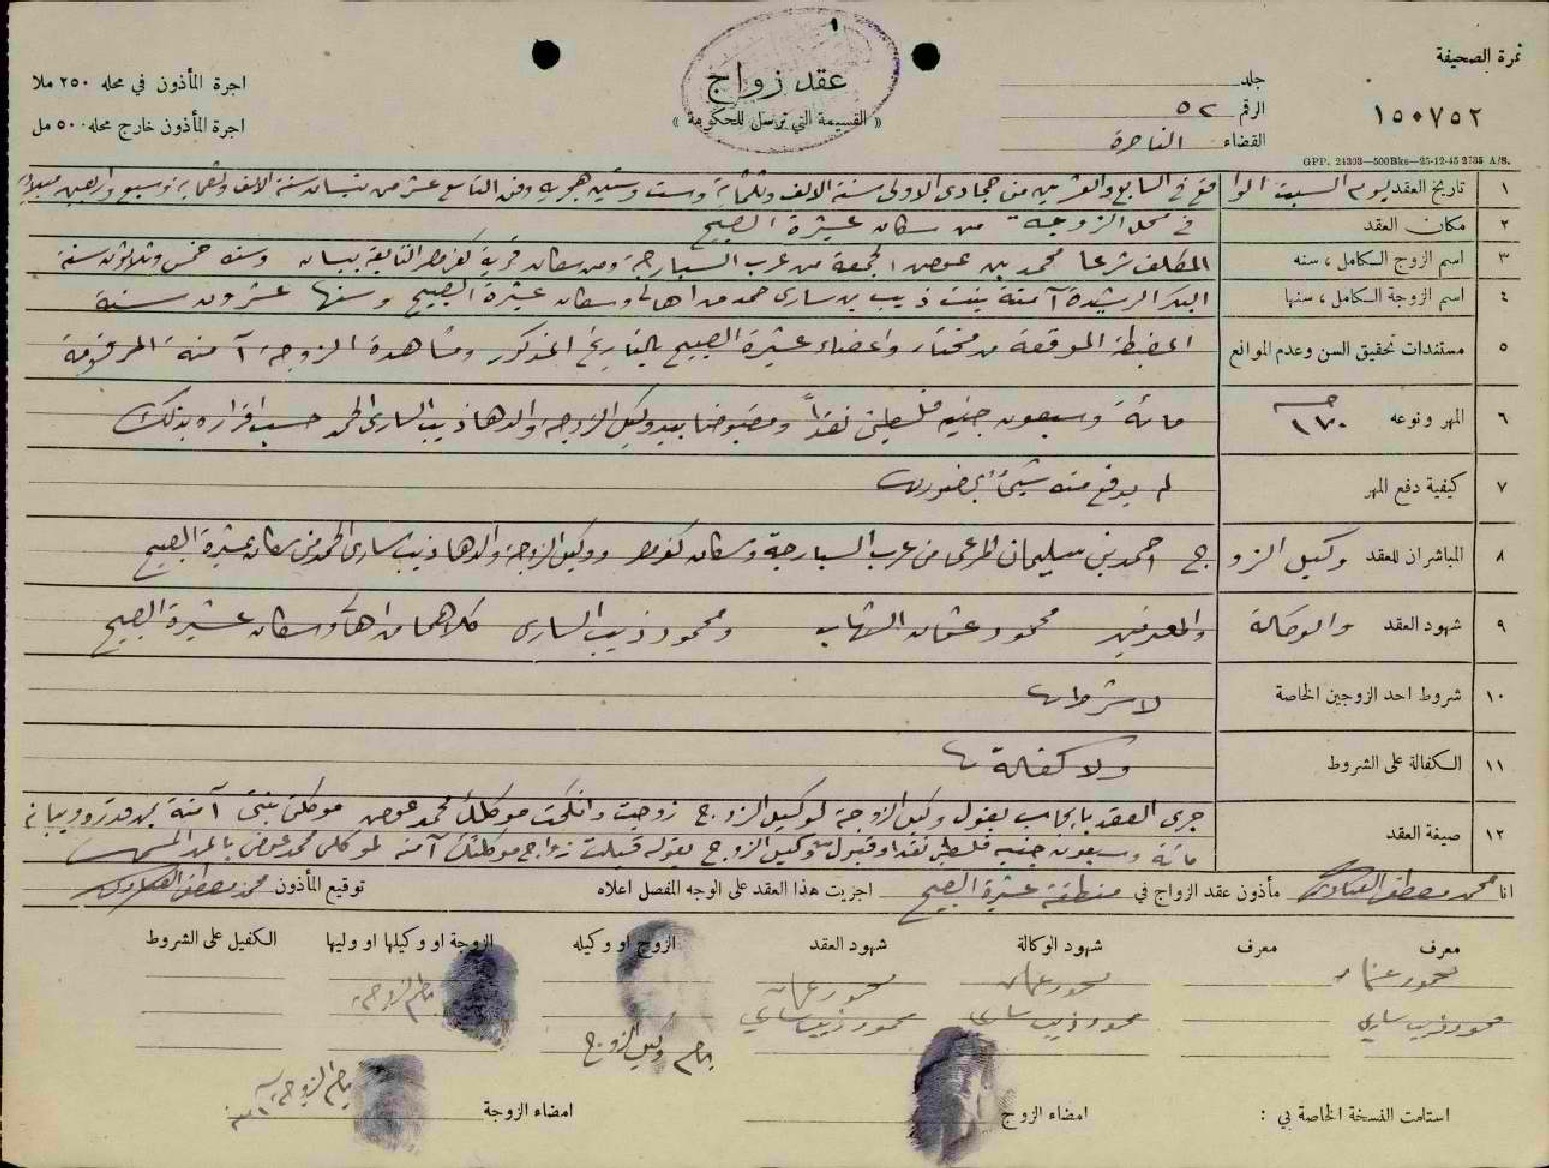 نمرة الصحيفة
١٥٠٧٥٢
جلد
الرقم ٥٢
القضاء الناصرة
عقد زواج
« القسيمة التي ترسل للحكومة »
اجرة المأذون في محله ٢٥٠ ملا
اجرة المأذون خارج محله ٥٠٠ مل
GPP. 24303—500Bks—25-12-45 2535 A/S.
١ تاريخ العقد يوم السبت الواقع في السابع والعشرين من جمادى الاولى سنة الالف وثلثماية وست وستين هجريه وفق التاسع عشر من نيسان سنة الالف وتسعماية وسبع واربعين ميلاديه
٢ مكان العقد في محل الزوجة من سكان عشيرة الصبيح
٣ اسم الزوج الكامل ، سنه المكلف شرعا محمد بن عوض الجمعة من عرب السيارجة ومن سكان قرية كفرمصر التابعة بيسان وسنه خمس وثلاثون سنة
٤ اسم الزوجة الكامل ، سنها البكر الرشيدة آمنة بنت ذيب بن ساري حمد من اهالي وسكان عشيرة الصبيح وسنها عشرون سنة
٥ مستندات تحقيق السن وعدم الموانع المضبطة الموقعة من مختار واعضاء عشيرة الصبيح بالتاريخ المذكور ومشاهدة الزوجة آمنة المرقومة
٦ المهر ونوعه ١٧٠ مائة وسبعون جنيه فلسطيني نقداً ومقبوضا بيد وكيل الزوجة والدها ذيب الساري الحمد حسب اقراره بذلك
٧ كيفية دفع المهر لم يدفع منه شيئ بحضوري
٨ المباشران للعقد وكيل الزوج احمد بن سليمان المرعي من عرب السيارجة وسكان كفرمصر ووكيل الزوجة والدها ذيب ساري الحمد من سكان عشيرة الصبيح
٩ شهود العقد والوكالة والمعرفين محمود عثمان الشهاب ومحمود ذيب الساري كلاهما من اهالي وسكان عشيرة الصبيح
١٠ شروط احد الزوجين الخاصة لا شروط
١١ الكفالة على الشروط ولا كفالة
١٢ صيغة العقد جرى العقد بايجاب بقول وكيل الزوجة لوكيل الزوج زوجت وانكحت موكلك محمد عوض موكلتي بنتي آمنة بمهر قدره وبيانه
مائة وسبعون جنيه فلسطيني نقدا وقبول وكيل الزوج بقوله قبلت زواج موكلتك آمنة لموكلي محمد عوض بالمهر المسمى
انا محمد مصطفى مأذون عقد الزواج في منطقة عشيرة الصبيح اجريت هذا العقد على الوجه المفصل اعلاه توقيع المأذون محمد مصطفى
معرف معرف شهود الوكالة شهود العقد الزوج او وكيله الزوجة او وكيلها او وليها الكفيل على الشروط
محمود عثمان محمود عثمان محمود عثمان
محمود ذيب ساري محمود ذيب ساري محمود ذيب ساري
باهم وكيل الزوج
استلمت النسخة الخاصة بي : امضاء الزوج امضاء الزوجة